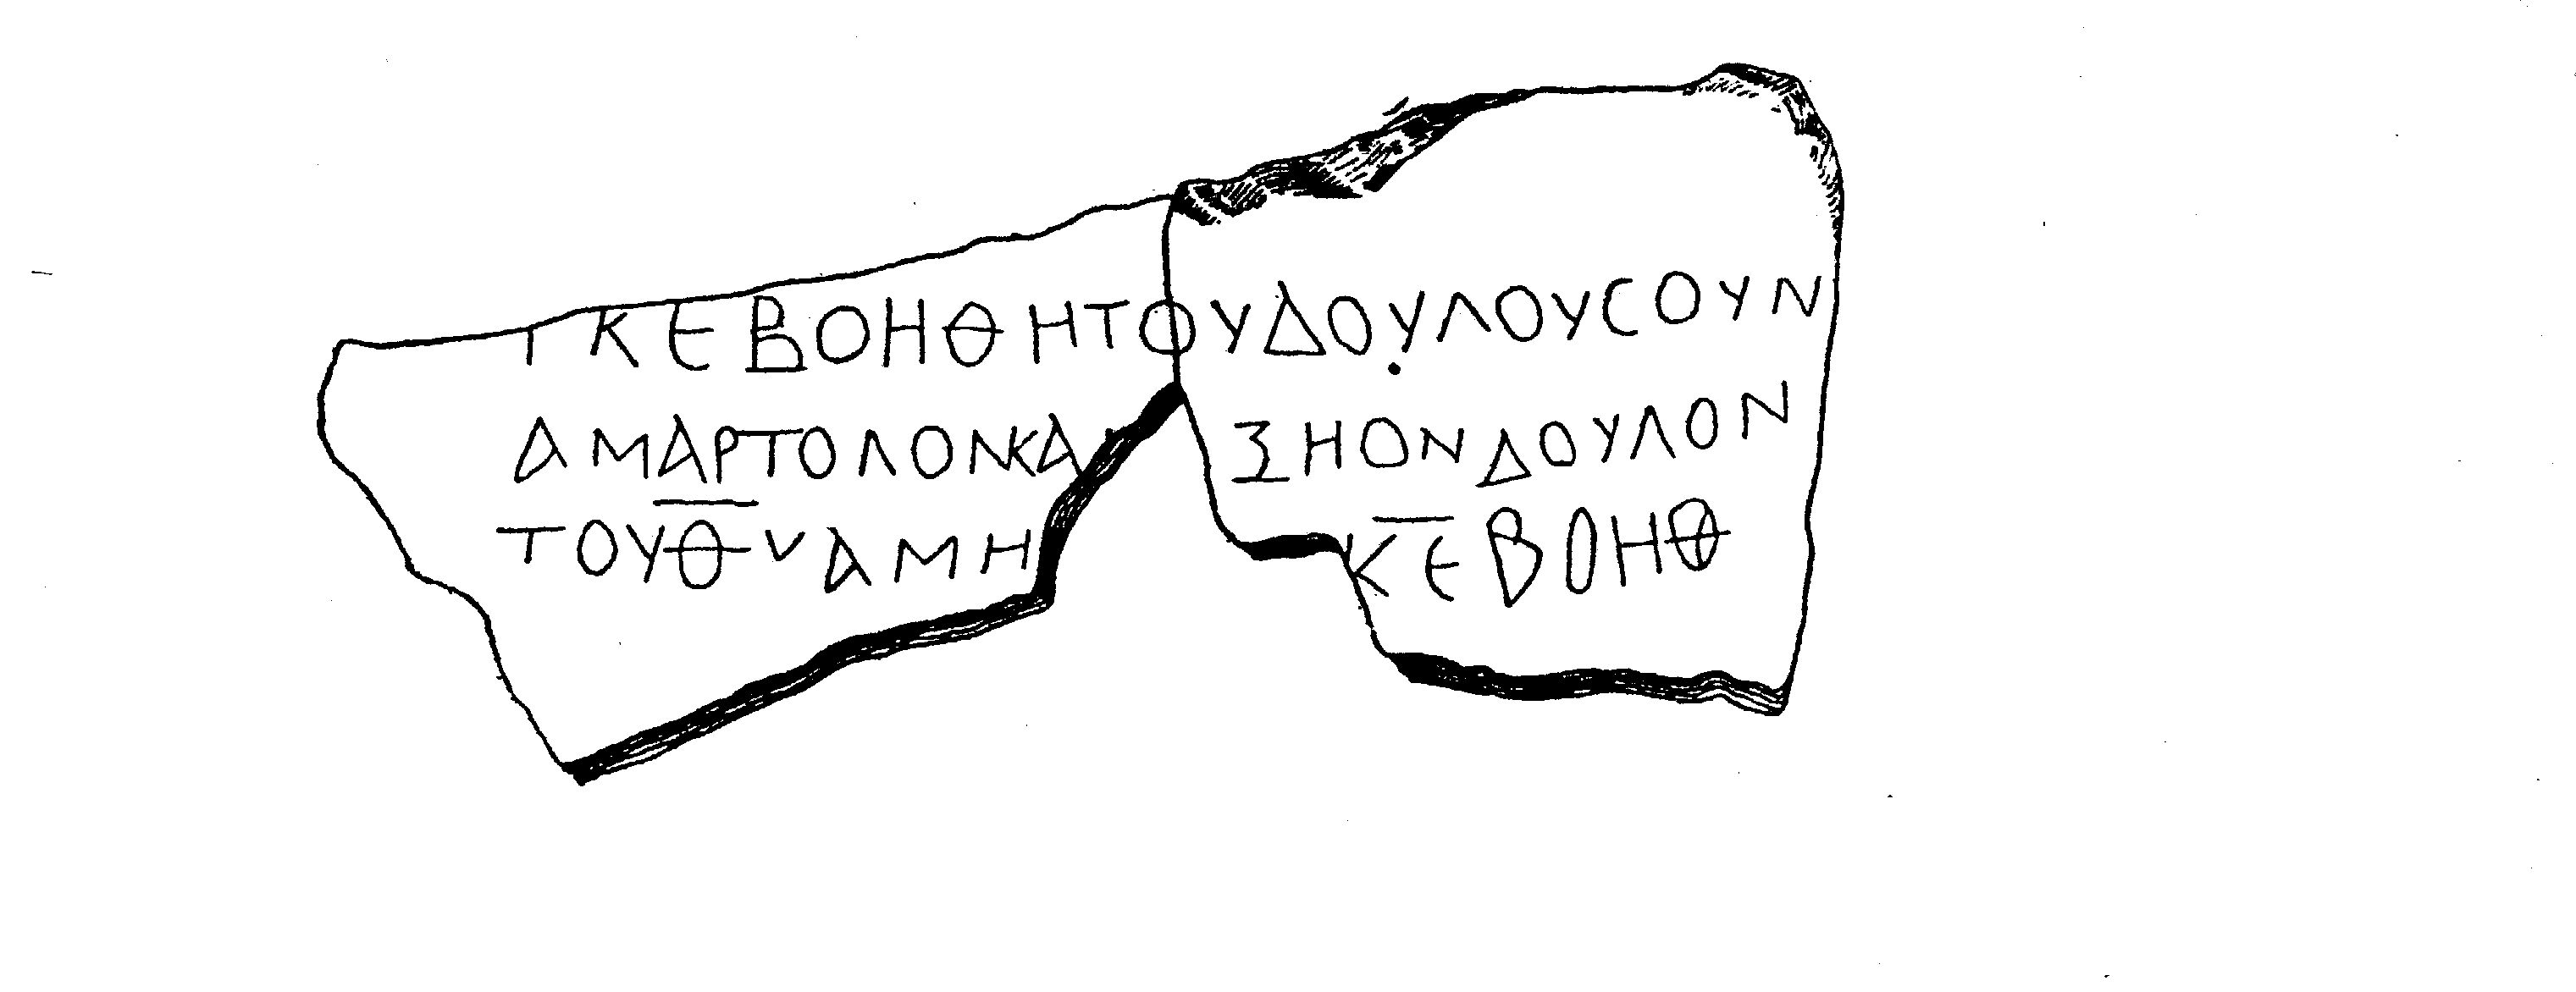 ΤΚΕΒΟΗΘΗΤΟΥΔΟΥΛΟΥСΟΥΝ
ΑΜΑΡΤΟΛΟΝΚΑ ΞΗΟΝΔΟΥΛΟΝ
ΤΟΥΘΥΑΜΗ ΚΕΒΟΗΘ